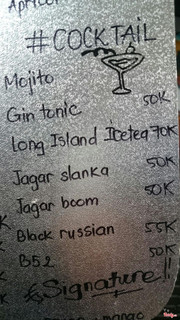 Apricot
#COCKTAIL
Mojito
50K
Gin tonic
Long Island Icetea 70K
50K
Jagar slanka
50K
Jagar boom
55K
Black russian
50K
B52
Signature!!
mango